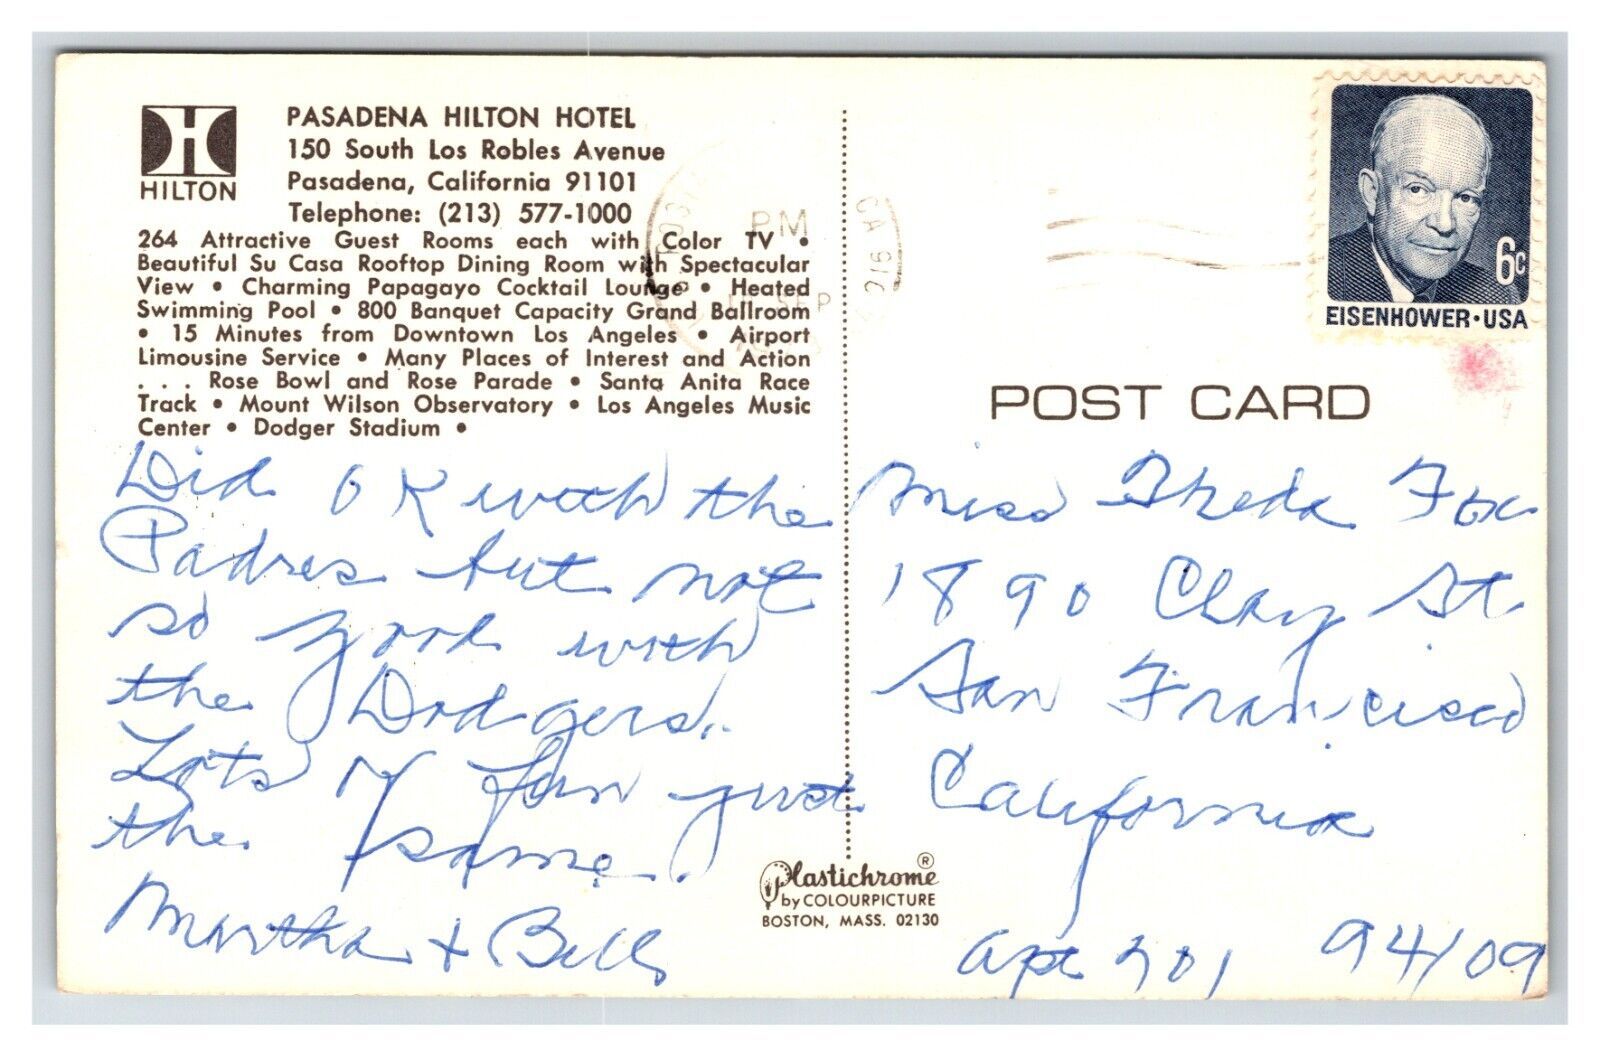 HILTON
PASADENA HILTON HOTEL
150 South Los Robles Avenue
Pasadena, California 91101
Telephone: (213) 577-1000
264 Attractive Guest Rooms each with Color TV •
Beautiful Su Casa Rooftop Dining Room with Spectacular
View • Charming Papagayo Cocktail Lounge • Heated
Swimming Pool • 800 Banquet Capacity Grand Ballroom
• 15 Minutes from Downtown Los Angeles • Airport
Limousine Service • Many Places of Interest and Action
. . . Rose Bowl and Rose Parade • Santa Anita Race
Track • Mount Wilson Observatory • Los Angeles Music
Center • Dodger Stadium •
Did OK with the
Padres but not
so good with
the Dodgers.
Lots of fun just
the same.
Martha + Bill
PM
SEP
CA
6c
EISENHOWER · USA
POST CARD
Miss Theda Fox
1890 Clay St
San Francisco
California
Apt 201 94109
Plastichrome®
by COLOURPICTURE
BOSTON, MASS. 02130